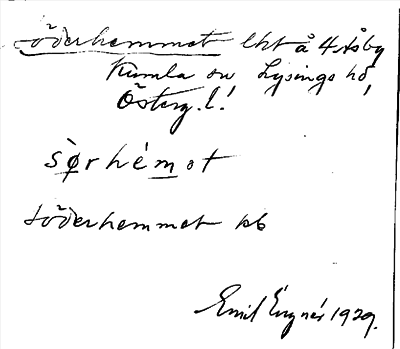 Söderhemmet lht å 4 Åsby
Kumla sn Lysings hd,
Österg. l.
sø̀rhém̲ot
Söderhemmet kb
Emil 1929.